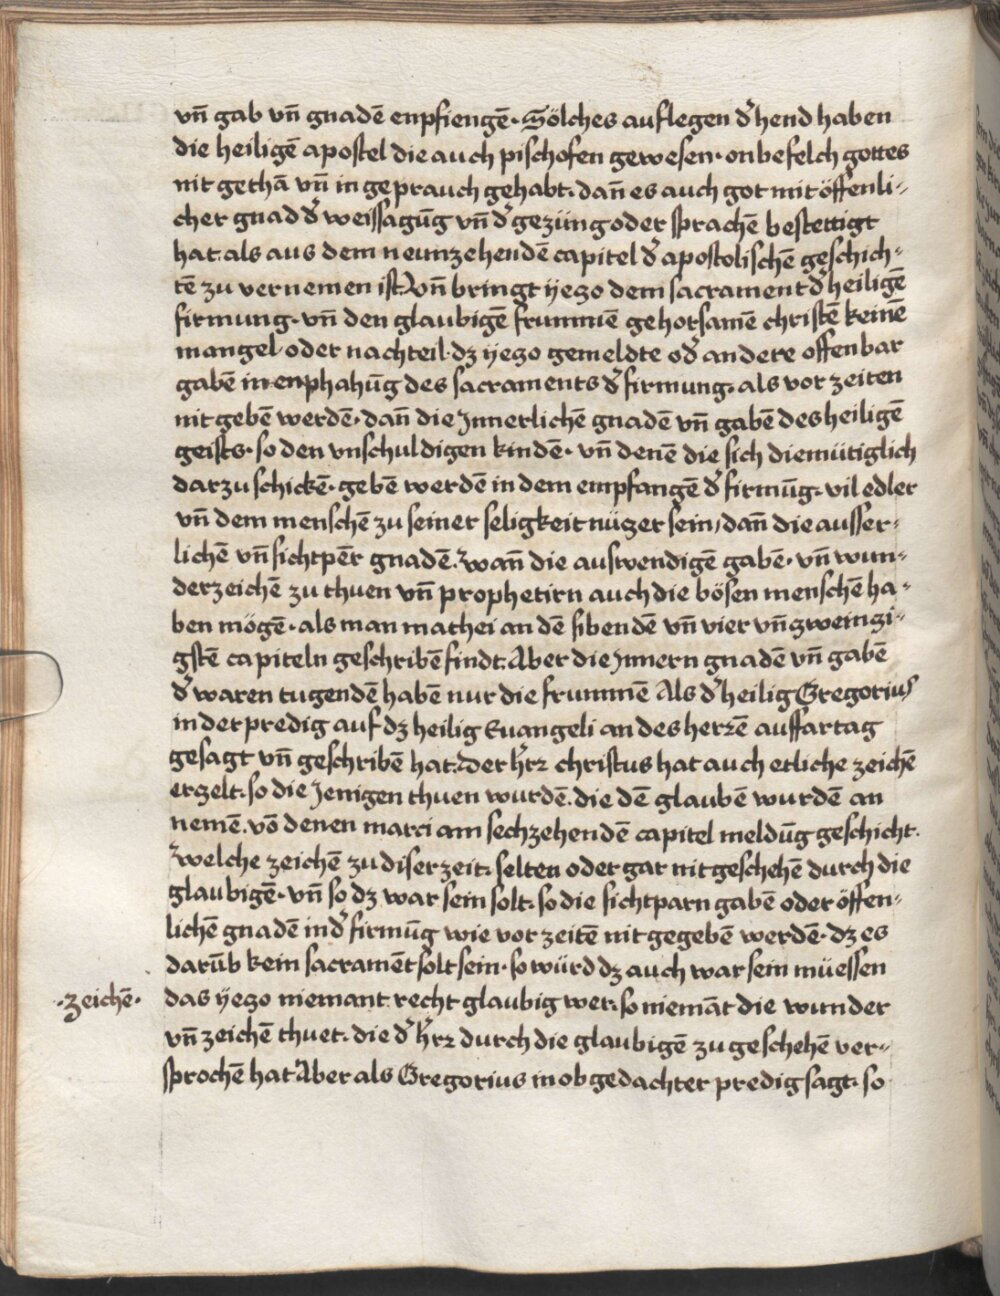 vn̄ gab vn̄ gnadē enpfiengē · Sölches auflegen d̕ hend haben
die heiligē apostel die auch pischofen gewesen · on befelch gottes
nit gethā vn̄ in geprauch gehabt · dan̄ es auch got mit öffenli-
cher gnad d̕ weissagūg vn̄ d̕ gezüng oder sprachē bestettigt
hat · als aus dem neunzehendē capitel d̕ apostolischē geschich-
tē zu vernemen ist · Vn̄ bringt yezo dem sacrament d̕ heiligē
firmung · vn̄ den glaubigē frummē gehorsamē christē keinē
mangel oder nachteil · dz yezo gemeldte od̕ andere offenbar
gabē in enphahūg des sacraments d̕ firmung · als vor zeiten
nit gebē werdē · dan̄ die Jnnerlichē gnadē vn̄ gabē des heiligē
geists · so den vnschuldigen kindē · vn̄ denē die sich diemütiglich
darzu schickē · gebē werdē in dem empfangē d̕ firmūg · vil edler
vn̄ dem menschē zu seiner seligkeit nüzer sein / dan̄ die ausser-
lichē vn̄ sichtpēr gnadē · wan̄ die auswendigē gabē · vn̄ wun-
derzeichē zu thuen vn̄ prophetirn auch die bösen menschē ha-
ben mögē · als man mathei an dē sibendē vn̄ vier vn̄ zweinzi-
gstē capiteln geschribē findt · Aber die Jnnern gnadē vn̄ gabē
d̕ waren tugendē haben nur die frummē Als d̕ heilig Gregorius
in der predig auf dz heilig Euangeli an des herrē auffartag
gesagt vn̄ geschribē hat · der h̄rr christus hat auch etliche zeichē
erzelt · so die Jenigen thuen wurdē · die dē glaubē wurdē an
nemē · vō denen marci am sechzehendē capitel meldūg geschicht ·
welche zeichē zu diser zeit · selten oder gar nit geschehē durch die
glaubigē · vn̄ so dz war sein solt · so die sichtparn gabē oder öffen-
lichē gnadē in d̕ firmūg wie vor zeitē nit gegebē werdē · dz es
darūb kein sacramēt solt sein · so würd dz auch war sein müessen
·zeichē· das yezo niemant recht glaubig wer · so niemāt die wunder
vn̄ zeichē thuet · die d̕ h̄rr durch die glaubigē zu geschehē ver-
sprochē hat · Aber als Gregorius in obgedachter predig sagt · so